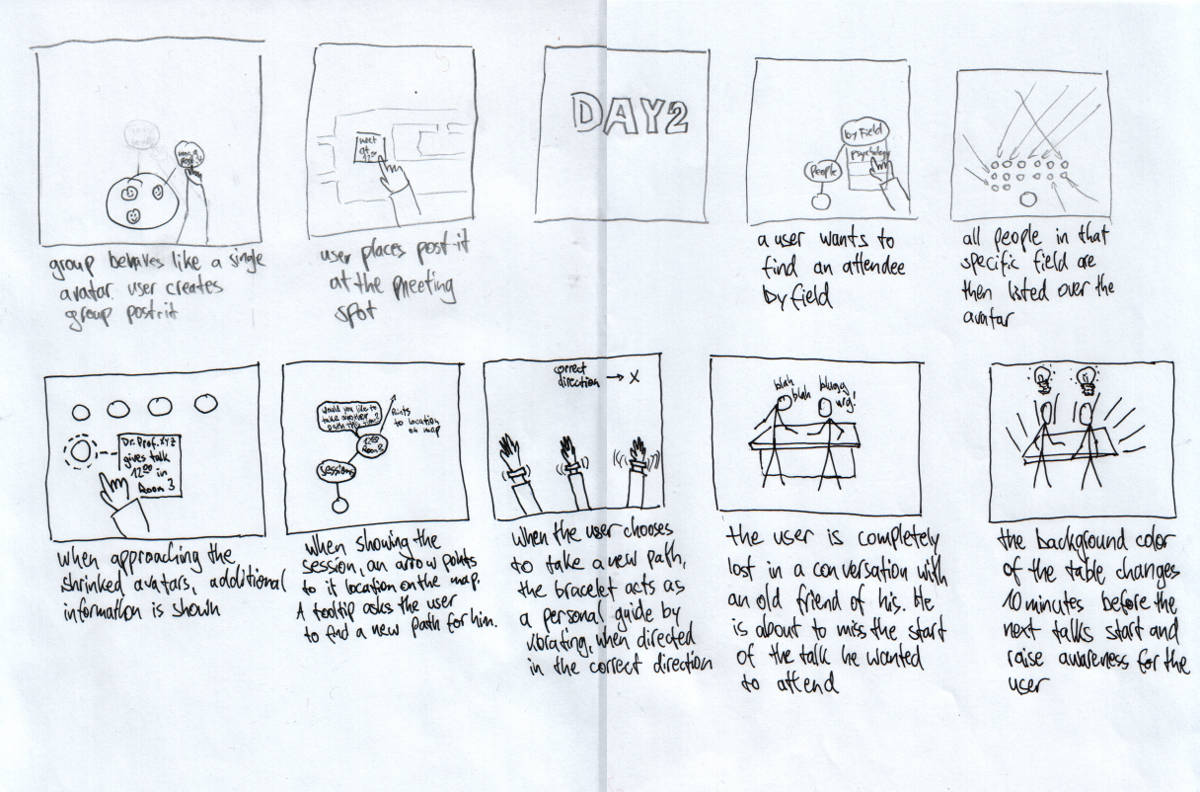 group behaves like a single
avatar. user creates
group post-it
meet
at
12:00
user places post-it
at the meeting
spot
DAY2
by Field
psychology
People
a user wants to
find an attendee
by field
all people in that
specific field are
then listed over the
avatar
Dr. Prof. XYZ
gives talk
12:00 in
Room 3
when approaching the
shrinked avatars, additional
information is shown
would you like to
take another
path this time?
Points
to location
on map
12:00
Room 3
Sessions
when showing the
session, an arrow points
to it location on the map.
A tooltip asks the user
to find a new path for him.
correct
direction → X
when the user chooses
to take a new path,
the bracelet acts as
a personal guide by
vibrating, when directed
in the correct direction
blah
blah
blugg
urg!
the user is completely
lost in a conversation with
an old friend of his. He
is about to miss the start
of the talk he wanted
to attend
the background color
of the table changes
10 minutes before the
next talks start and
raise awareness for the
user